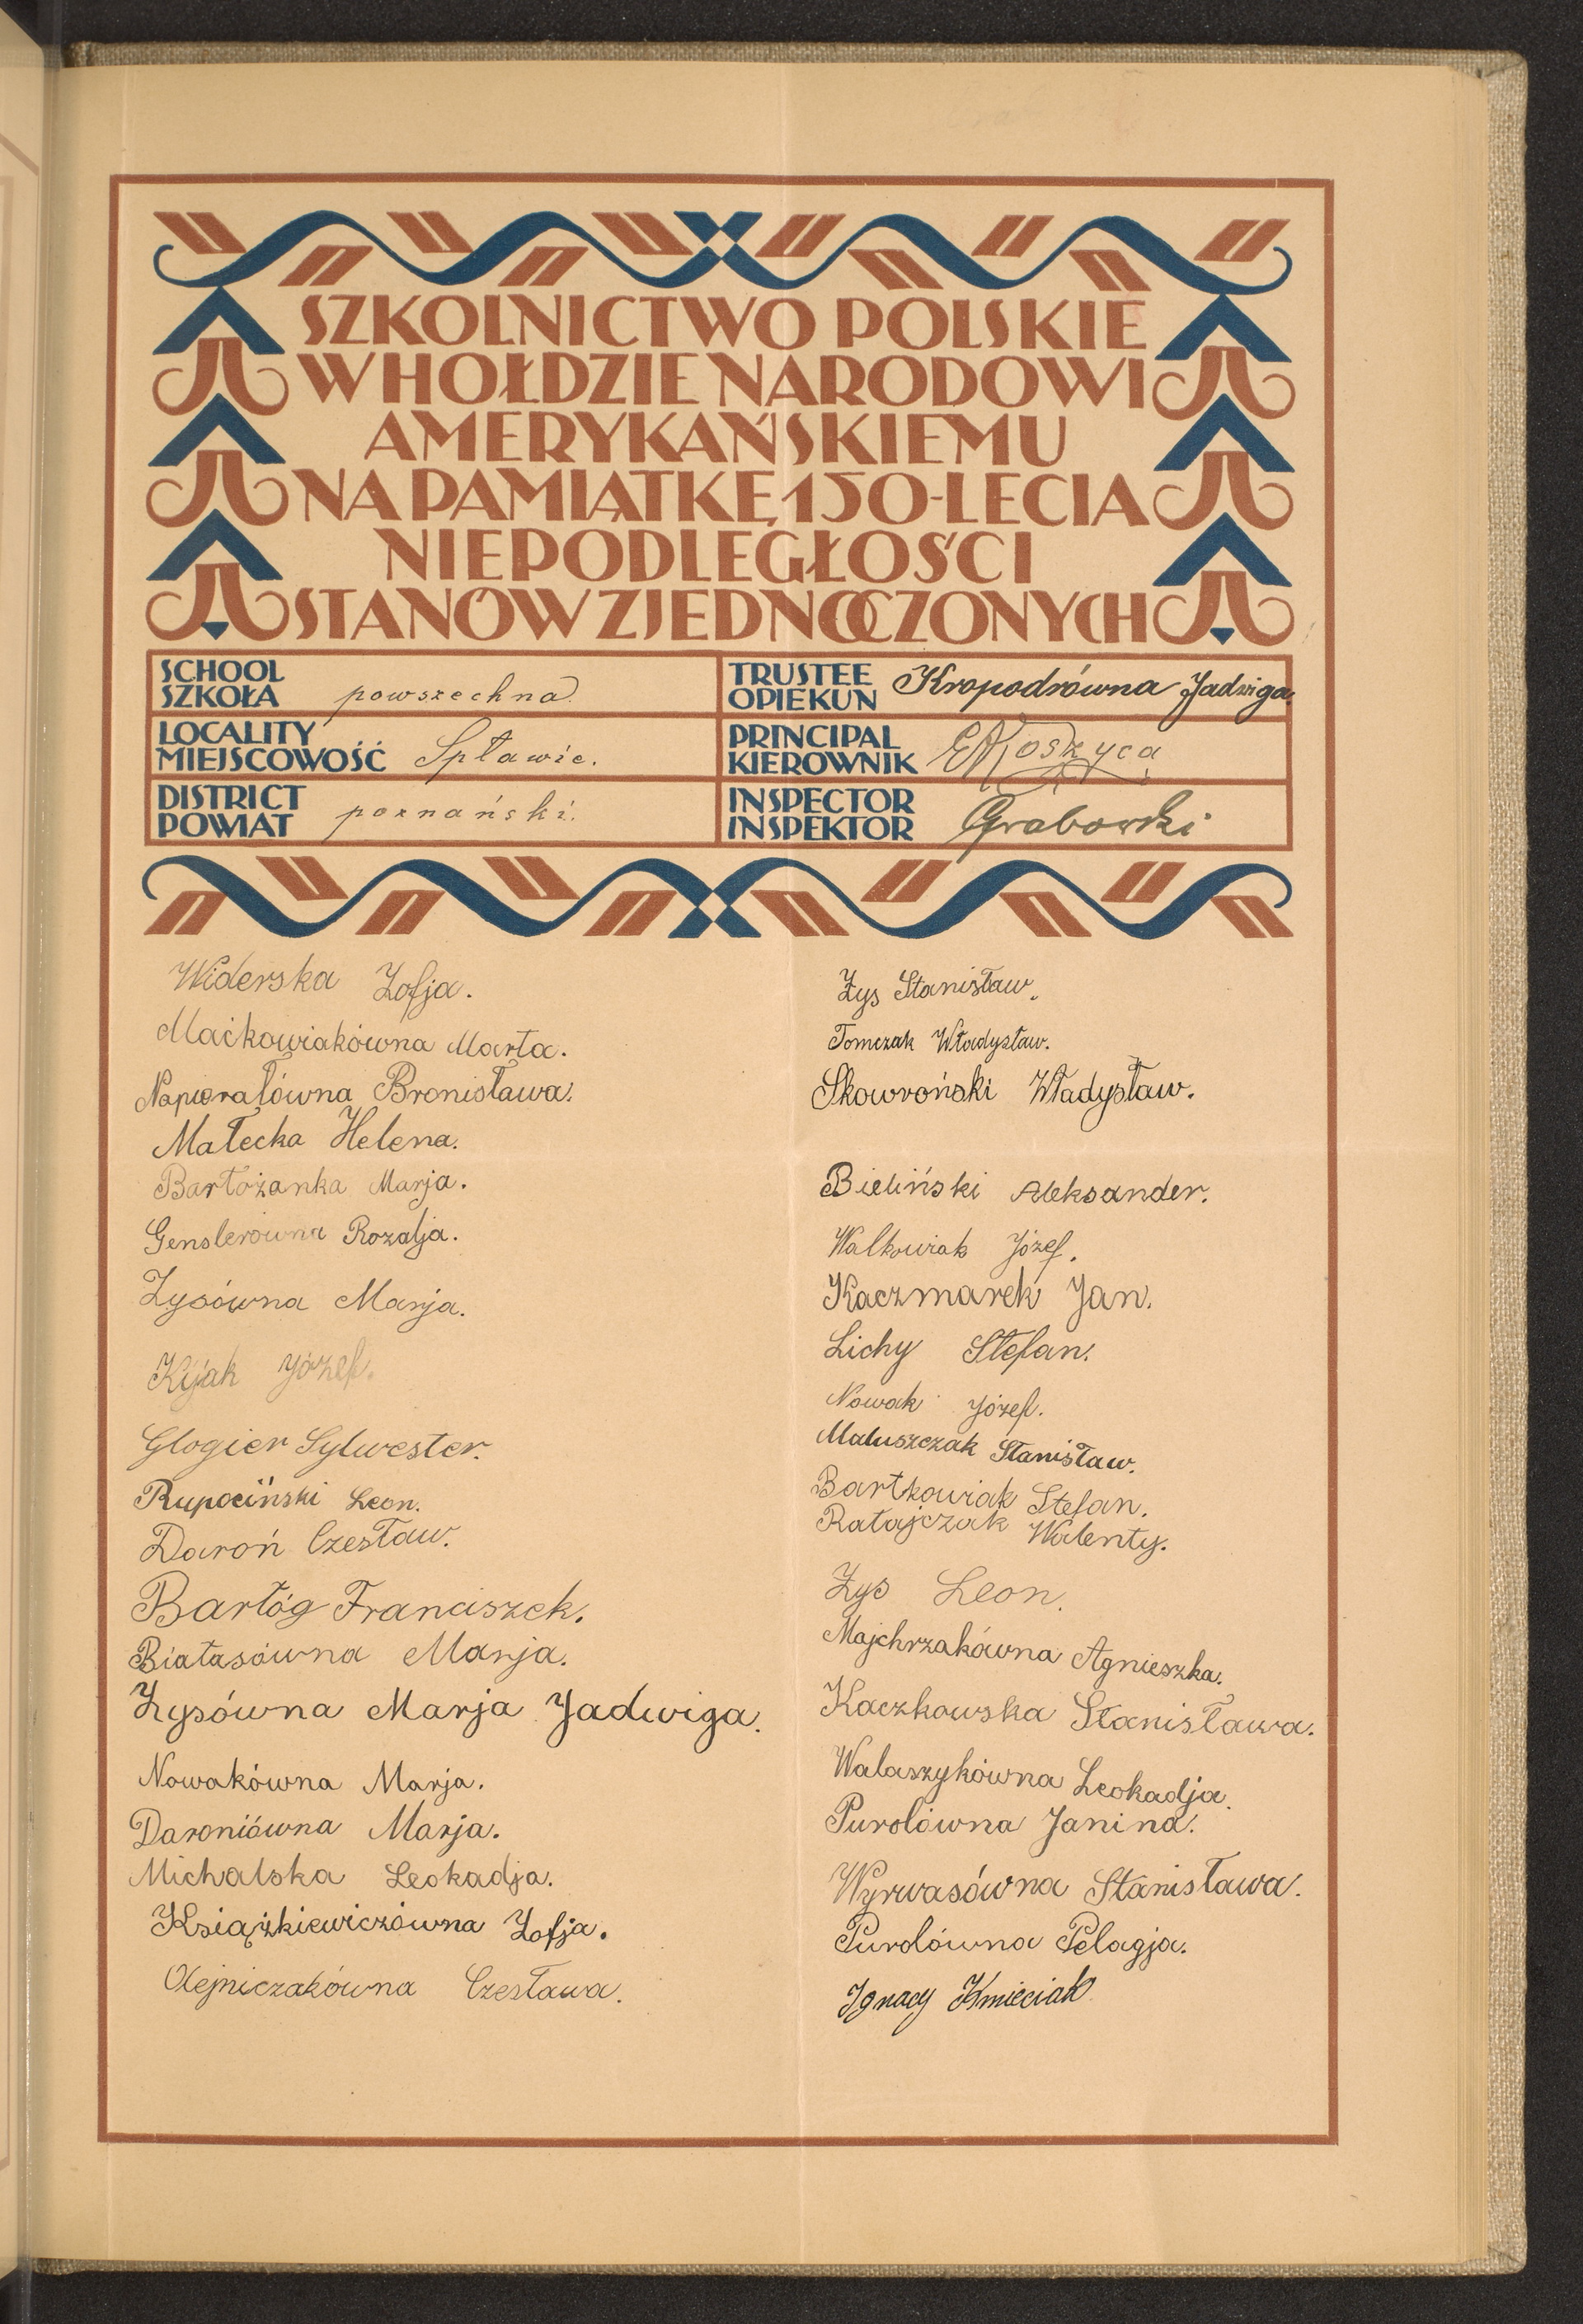 SZKOLNICTWO POLSKIE
W HOŁDZIE NARODOWI
AMERYKAŃSKIEMU
NA PAMIĄTKĘ 150-LECIA
NIEPODLEGŁOŚCI
STANÓW ZJEDNOCZONYCH
SCHOOL
SZKOŁA powszechna
LOCALITY
MIEJSCOWOŚĆ Spławie.
DISTRICT
POWIAT poznański.
TRUSTEE
OPIEKUN Kropodrówna Jadwiga
PRINCIPAL
KIEROWNIK Koszyca
INSPECTOR
INSPEKTOR Grabowski
Widerska Zofja.
Maćkowiakówna Marta.
Napierałówna Bronisława.
Małecka Helena.
Bartożanka Marja.
Genslerówna Rozalja.
Zysówna Marja.
Kijak Józef.
Glogier Sylwester.
Rupociński Leon.
Daroń Czesław.
Bartóg Franciszek.
Białasówna Marja.
Zysówna Marja Jadwiga.
Nowakówna Marja.
Daroniówna Marja.
Michalska Leokadja.
Książkiewiczówna Zofja.
Olejniczakówna Czesława.
Zys Stanisław.
Tomczak Władysław.
Skowroński Władysław.
Bieliński Aleksander.
Walkowiak Józef.
Kaczmarek Jan.
Lichy Stefan.
Nowak Józef.
Matuszczak Stanisław.
Bartkowiak Stefan.
Ratajczak Walenty.
Zys Leon.
Majchrzakówna Agnieszka.
Kaczkowska Stanisława.
Walaszykówna Leokadja.
Purolówna Janina.
Wyrwasówna Stanisława.
Purolówna Pelagja.
Ignacy Kmieciak